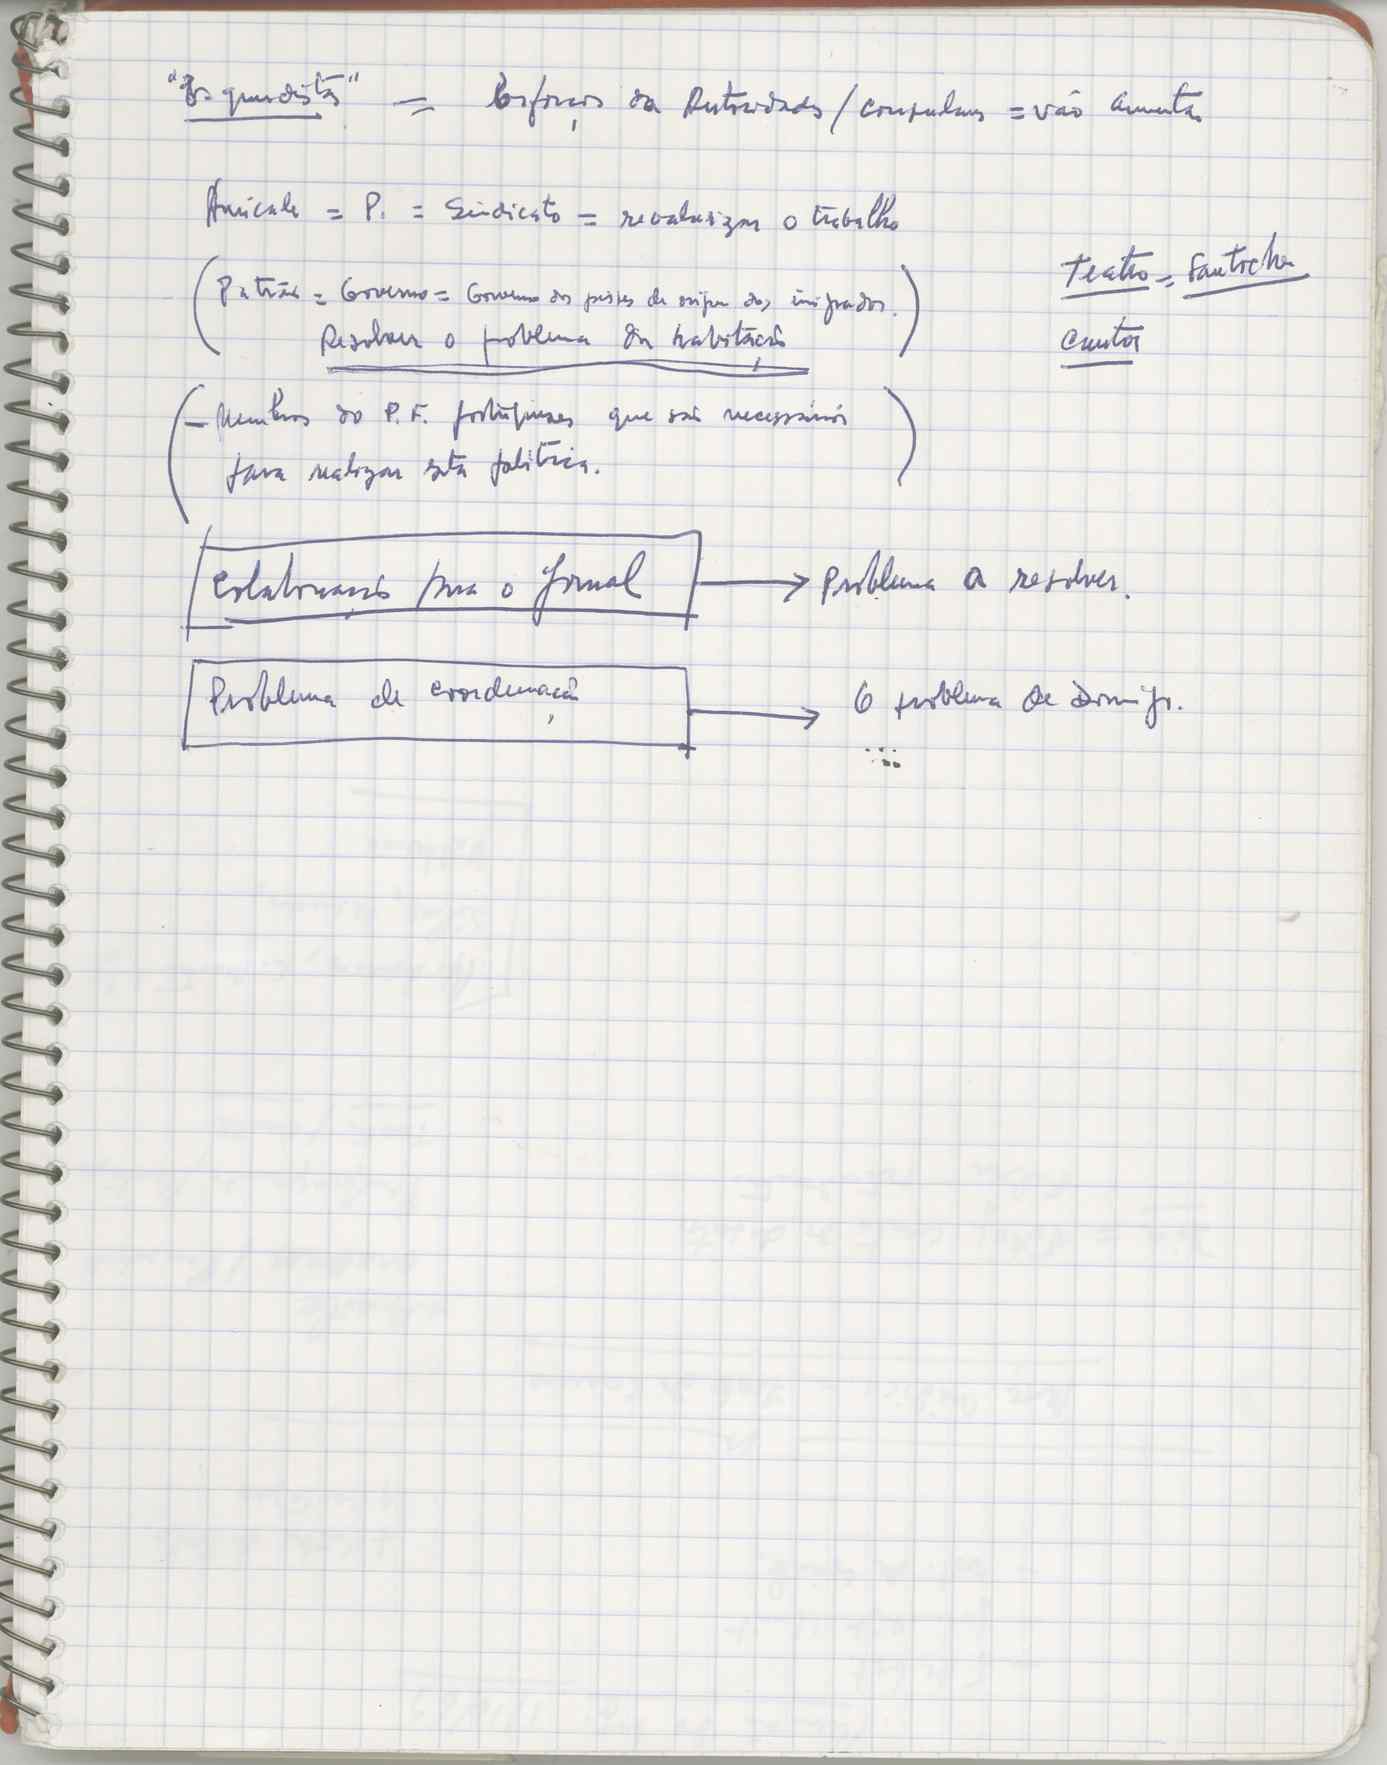 "Esquerdistas" = Esforços da Autoridades / consulares = vão aumentar
Amicale = P. = Sindicato = revalorizar o trabalho
(Patrões = Governo = Governo dos países de origem dos imigrados.)
Resolver o problema da habitação
Teatro = Gantocha
Cantos
(- Membros do P.F. portugueses que são necessários
para realizar esta política.)
Colaboração para o Jornal → Problema a resolver.
Problema de coordenação → O problema de Domingo.